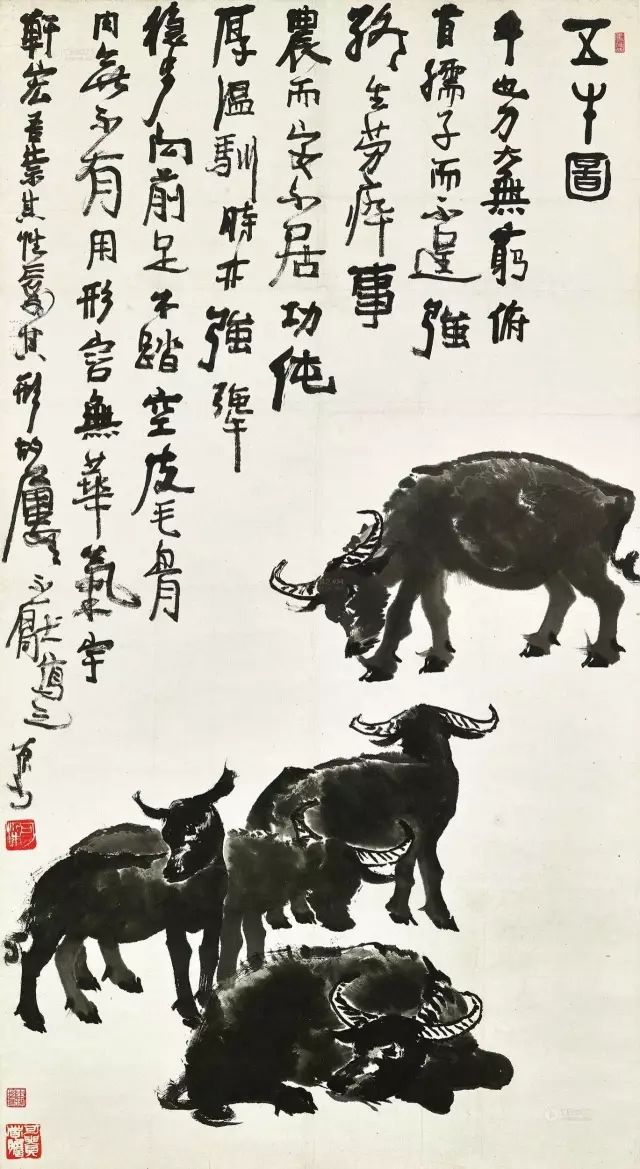 五牛圖
牛也力大無窮俯
首孺子而不逞強
終生勞瘁事
農而安不居功純
厚溫馴時亦強犟
穩步向前足不踏空皮毛骨
肉無不有用形容無華氣宇
軒宏吾崇其性愛其形故屢屢不厭寫之
可染